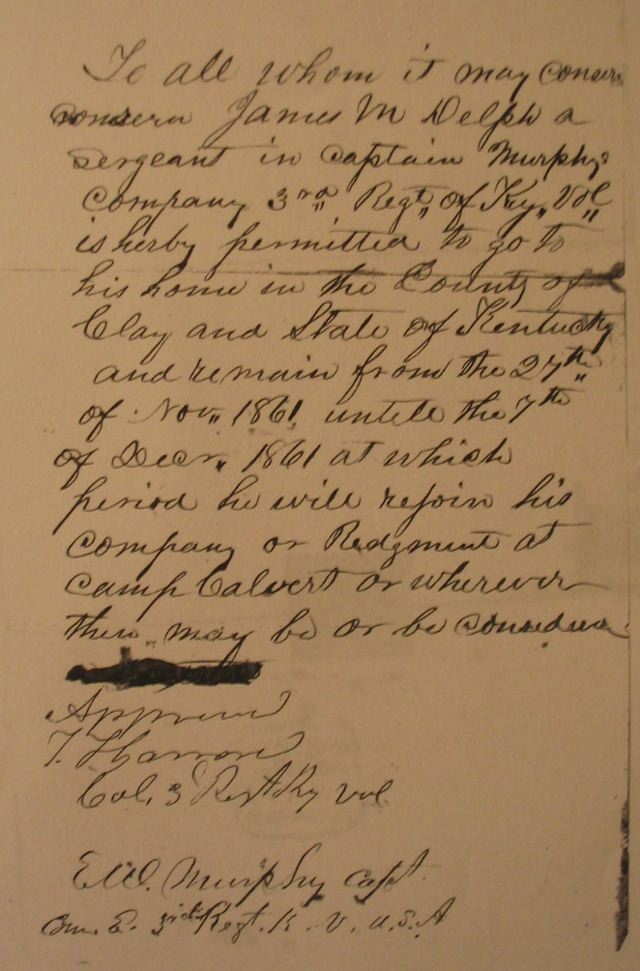 To all whom it may consern
consern James M Delph a
sergeant in captain Murphys
company 3rd Regt, of Ky, Vol
is herby permitted to go to
his home in the County of
Clay and State of Kentucky
and remain from the 27th
of Nov, 1861, untele the 7th
of Decr, 1861 at which
period he will rejoin his
company or Redgment at
camp Calvert or wherever
they may be or be
Approved
T. T.
Col, 3 Regt Ky vol
E.W. Murphy capt.
Com. E. 3rd Regt. K. V. U.S.A